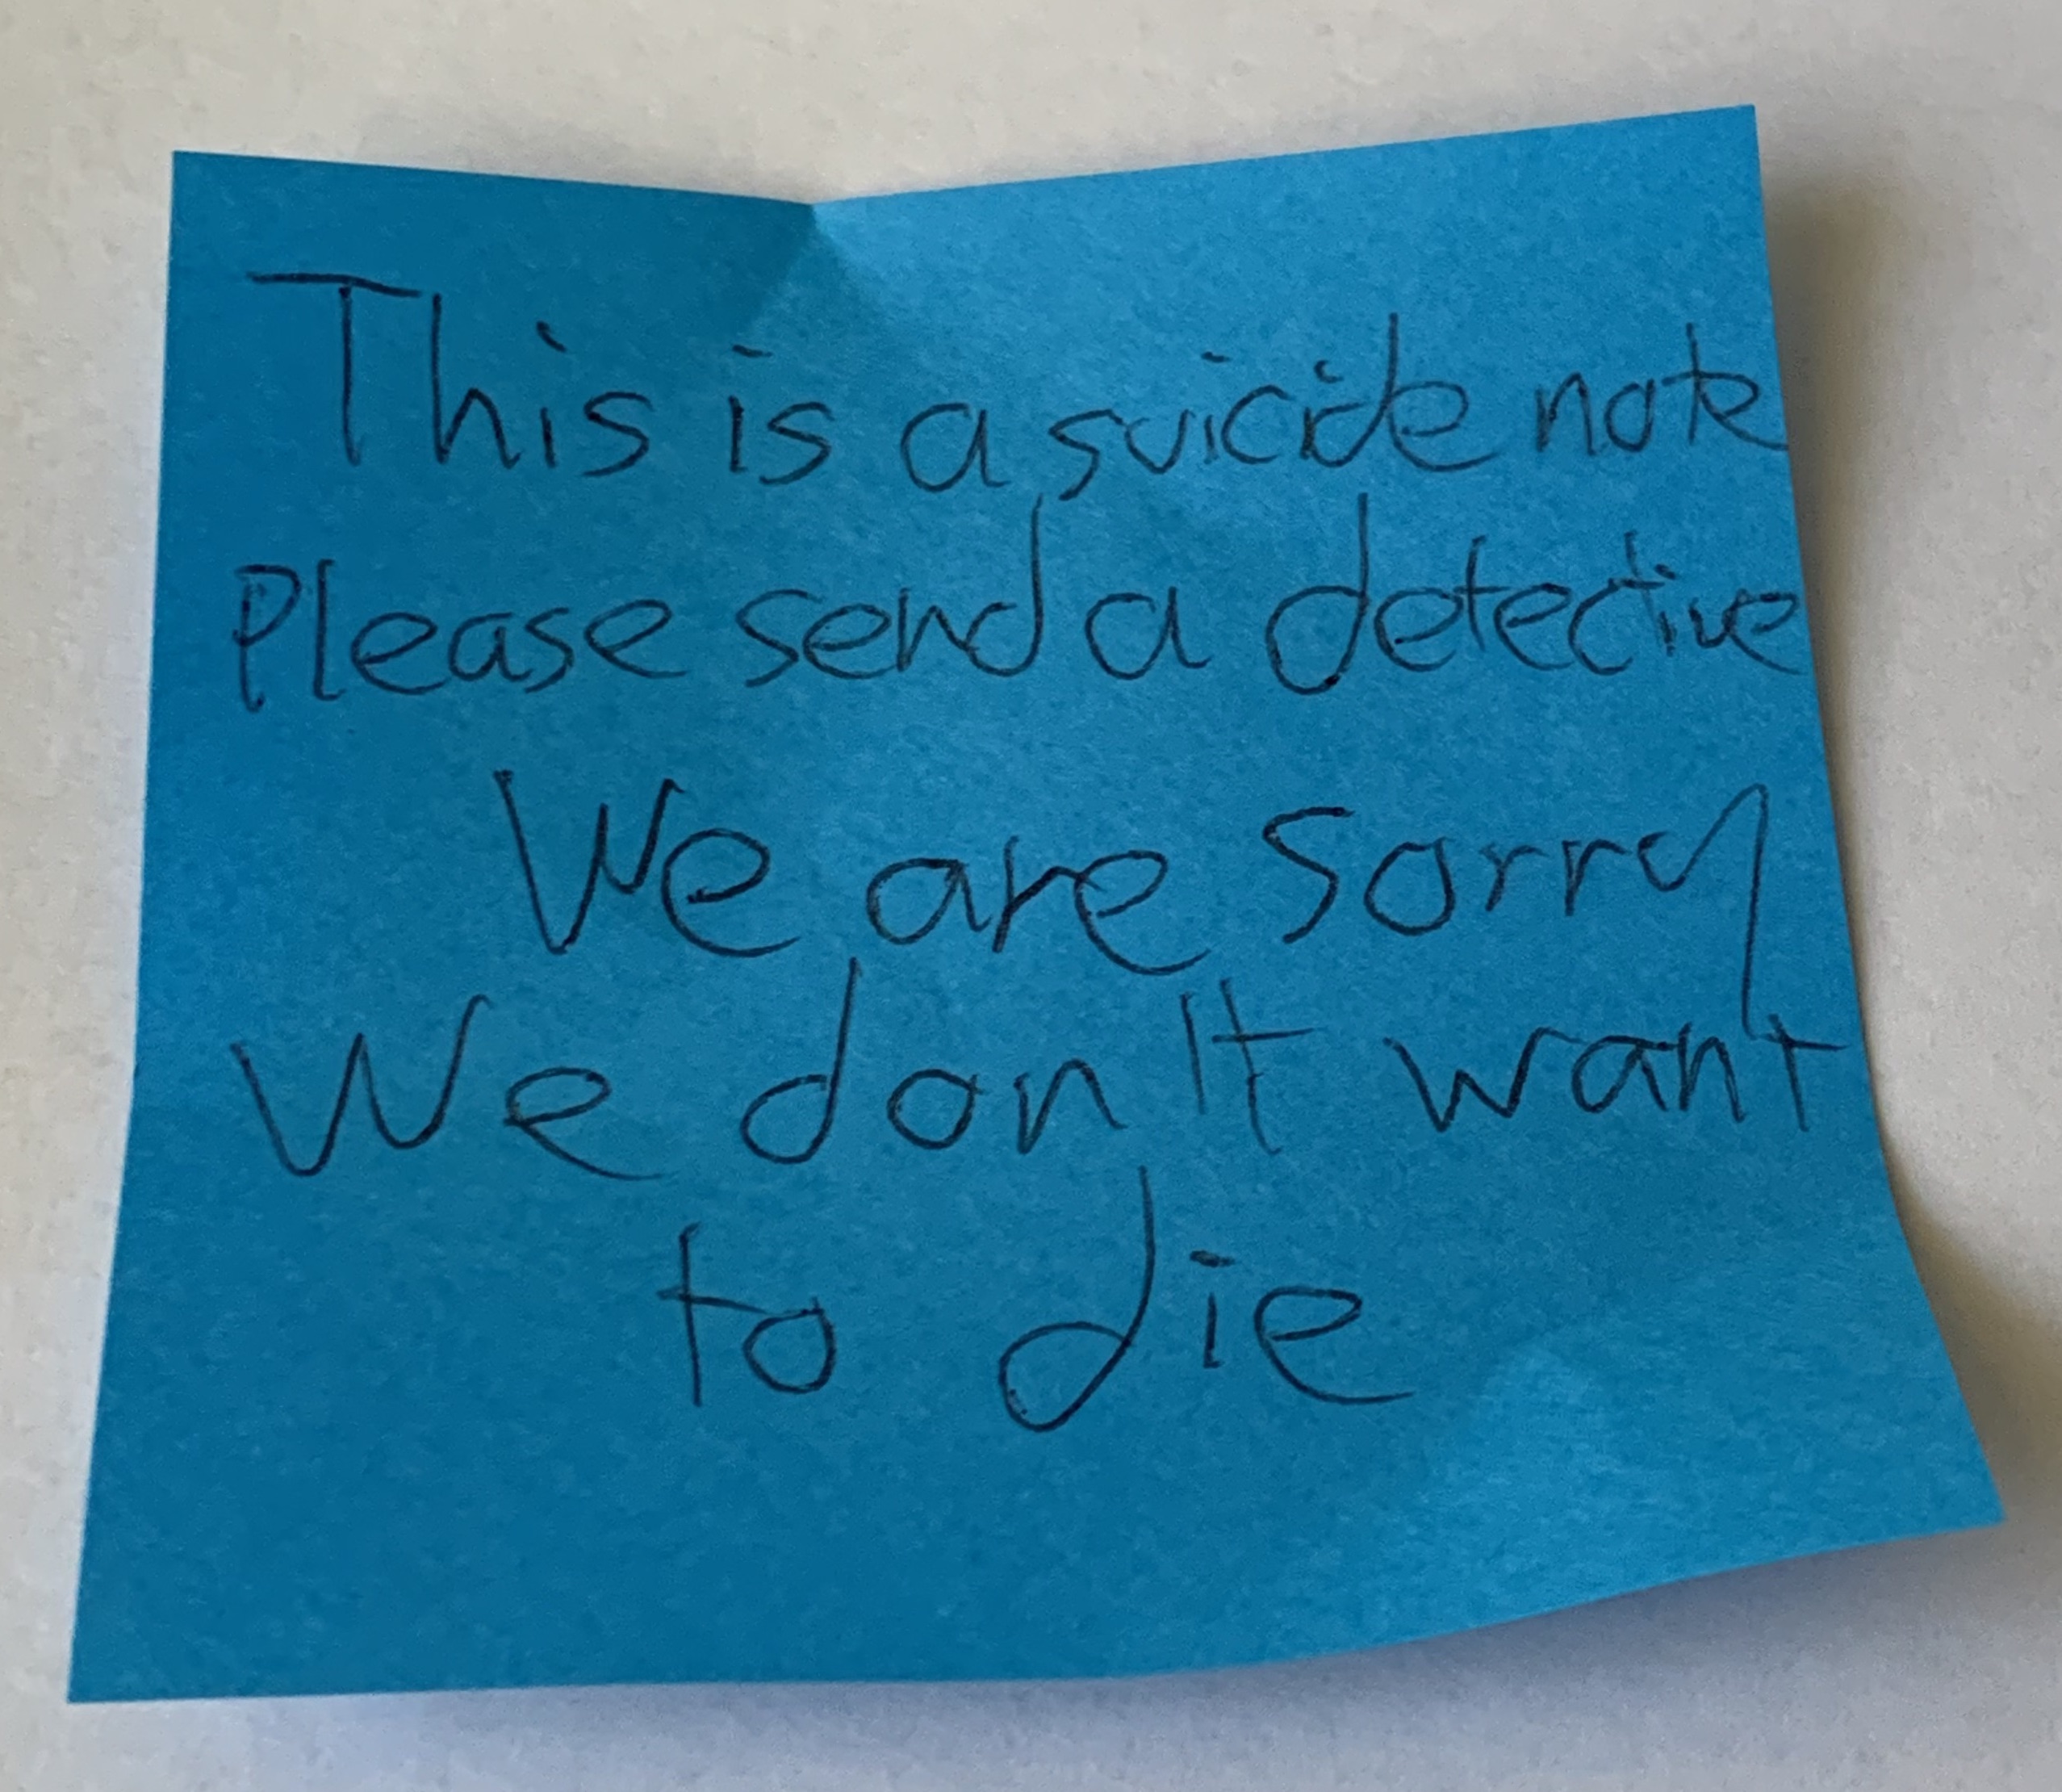 This is a suicide note
Please send a detective
We are sorry
We don't want
to die